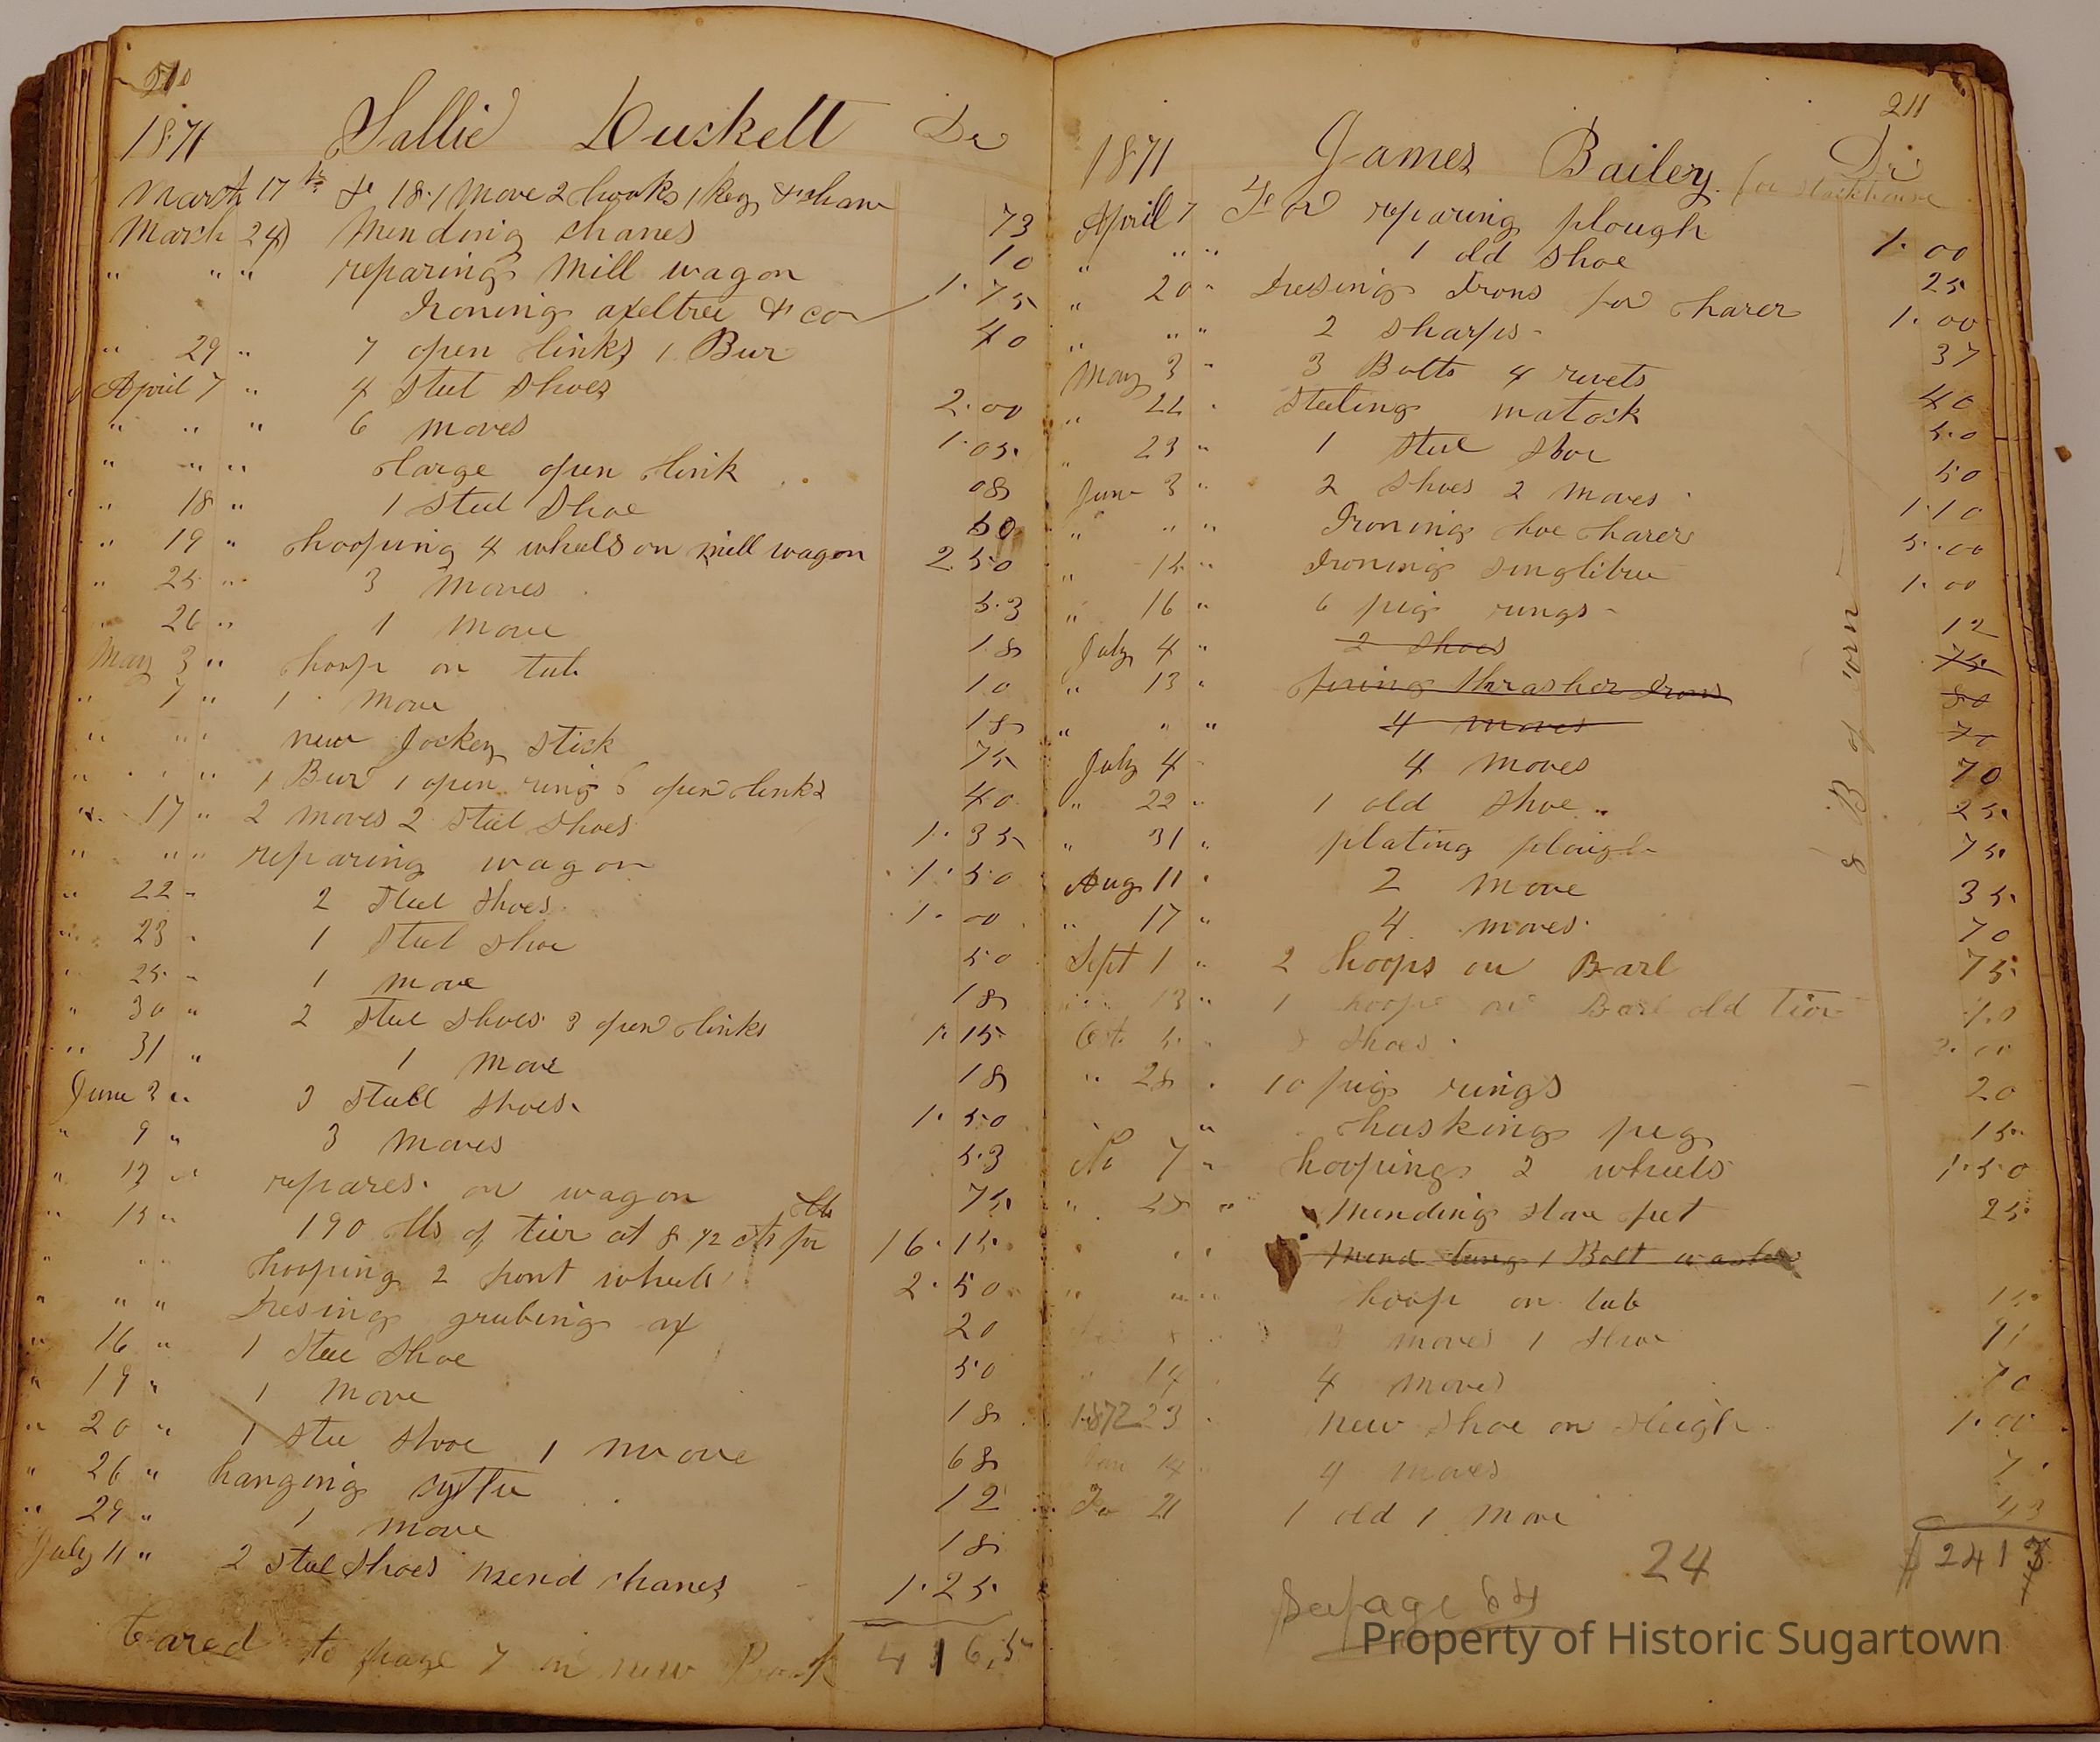 210
1871 Sallie Duskett Dr
March 17th to 18 1 Move 2 hooks 1 key & chane 73
March 24 Mending chanes 10
" " " reparing Mill wagon
Ironing axeltree & co 1.75
" 29 " 7 open links 1 Bur 40
April 7 " 4 steel shoes 2.00
" " " 6 moves 1.05
" " " large open link 08
" 18 " 1 Steel Shoe 50
" 19 " hooping 4 wheels on mill wagon 2.50
" 25 " 3 moves 53
" 26 " 1 move 18
May 3 " hoop on tub 10
" 7 " 1 move 18
" " " new Jockey stick 75
" " " 1 Bur 1 open ring 6 open links 40
" 17 " 2 moves 2 steel shoes 1.35
" " " reparing wagon 1.50
" 22 " 2 steel shoes 1.00
" 23 " 1 steel shoe 50
" 25 " 1 move 18
" 30 " 2 steel shoes 3 open links 1.15
" 31 " 1 move 18
June 3 " 3 steell shoes 1.50
" 9 " 3 moves 53
" 13 " repares on wagon 75
" 15 " 190 lbs of tier at 8 1/2 cts per lb 16.15
" " " hooping 2 front wheels 2.50
" " " Dresing grubing ax 20
" 16 " 1 steel shoe 50
" 19 " 1 move 18
" 20 " 1 stee shooe 1 moove 68
" 26 " hanging sythe 12
" 29 " 1 move 18
July 11 " 2 steel shoes mend chanes 1.25
Cared to page 7 in new Book 41 65
211
1871 James Bailey Dr
for
April 7 To reparing plough 1.00
" " " 1 old shoe 25
" 20 " Dresing Irons for charer 1.00
" " " 2 sharps 37
May 3 " 3 Bolts 4 revets 40
" 22 " Steeling matock 50
" 23 " 1 steel shoe 50
June 3 " 2 shoes 2 moves 1.10
" " " Ironing hoe harer 5.00
" 15 " Ironing singlitree 1.00
" 16 " 6 pig rings 12
July 4 " 2 shoes 75
" 13 " fixing thrasher Irons 80
" " " 4 moves 70
July 4 " 4 moves 70
" 22 " 1 old shoe 25
" 31 " plating plough 75
Aug 11 " 2 move 35
" 17 " 4 moves 70
Sept 1 " 2 hoops on Barl 75
" 13 " 1 hoop on Barl old Tier
Oct 5 " Shoes
" 28 " 10 pig rings 20
" " husking peg 15
No 7 " hooping 2 wheels 1.50
" 25 " Mending stove feet 25
" " " mend tung 1 Bolt
" " " hoop on tub 15
3 moves 1 shoe 91
" 14 " 4 moves 70
1872 23 " new shoe on sleigh 1.00
Jan 14 " 4 moves
21 1 old 1 move 43
8 B of corn
24 $ 24 13
See page 64
Property of Historic Sugartown